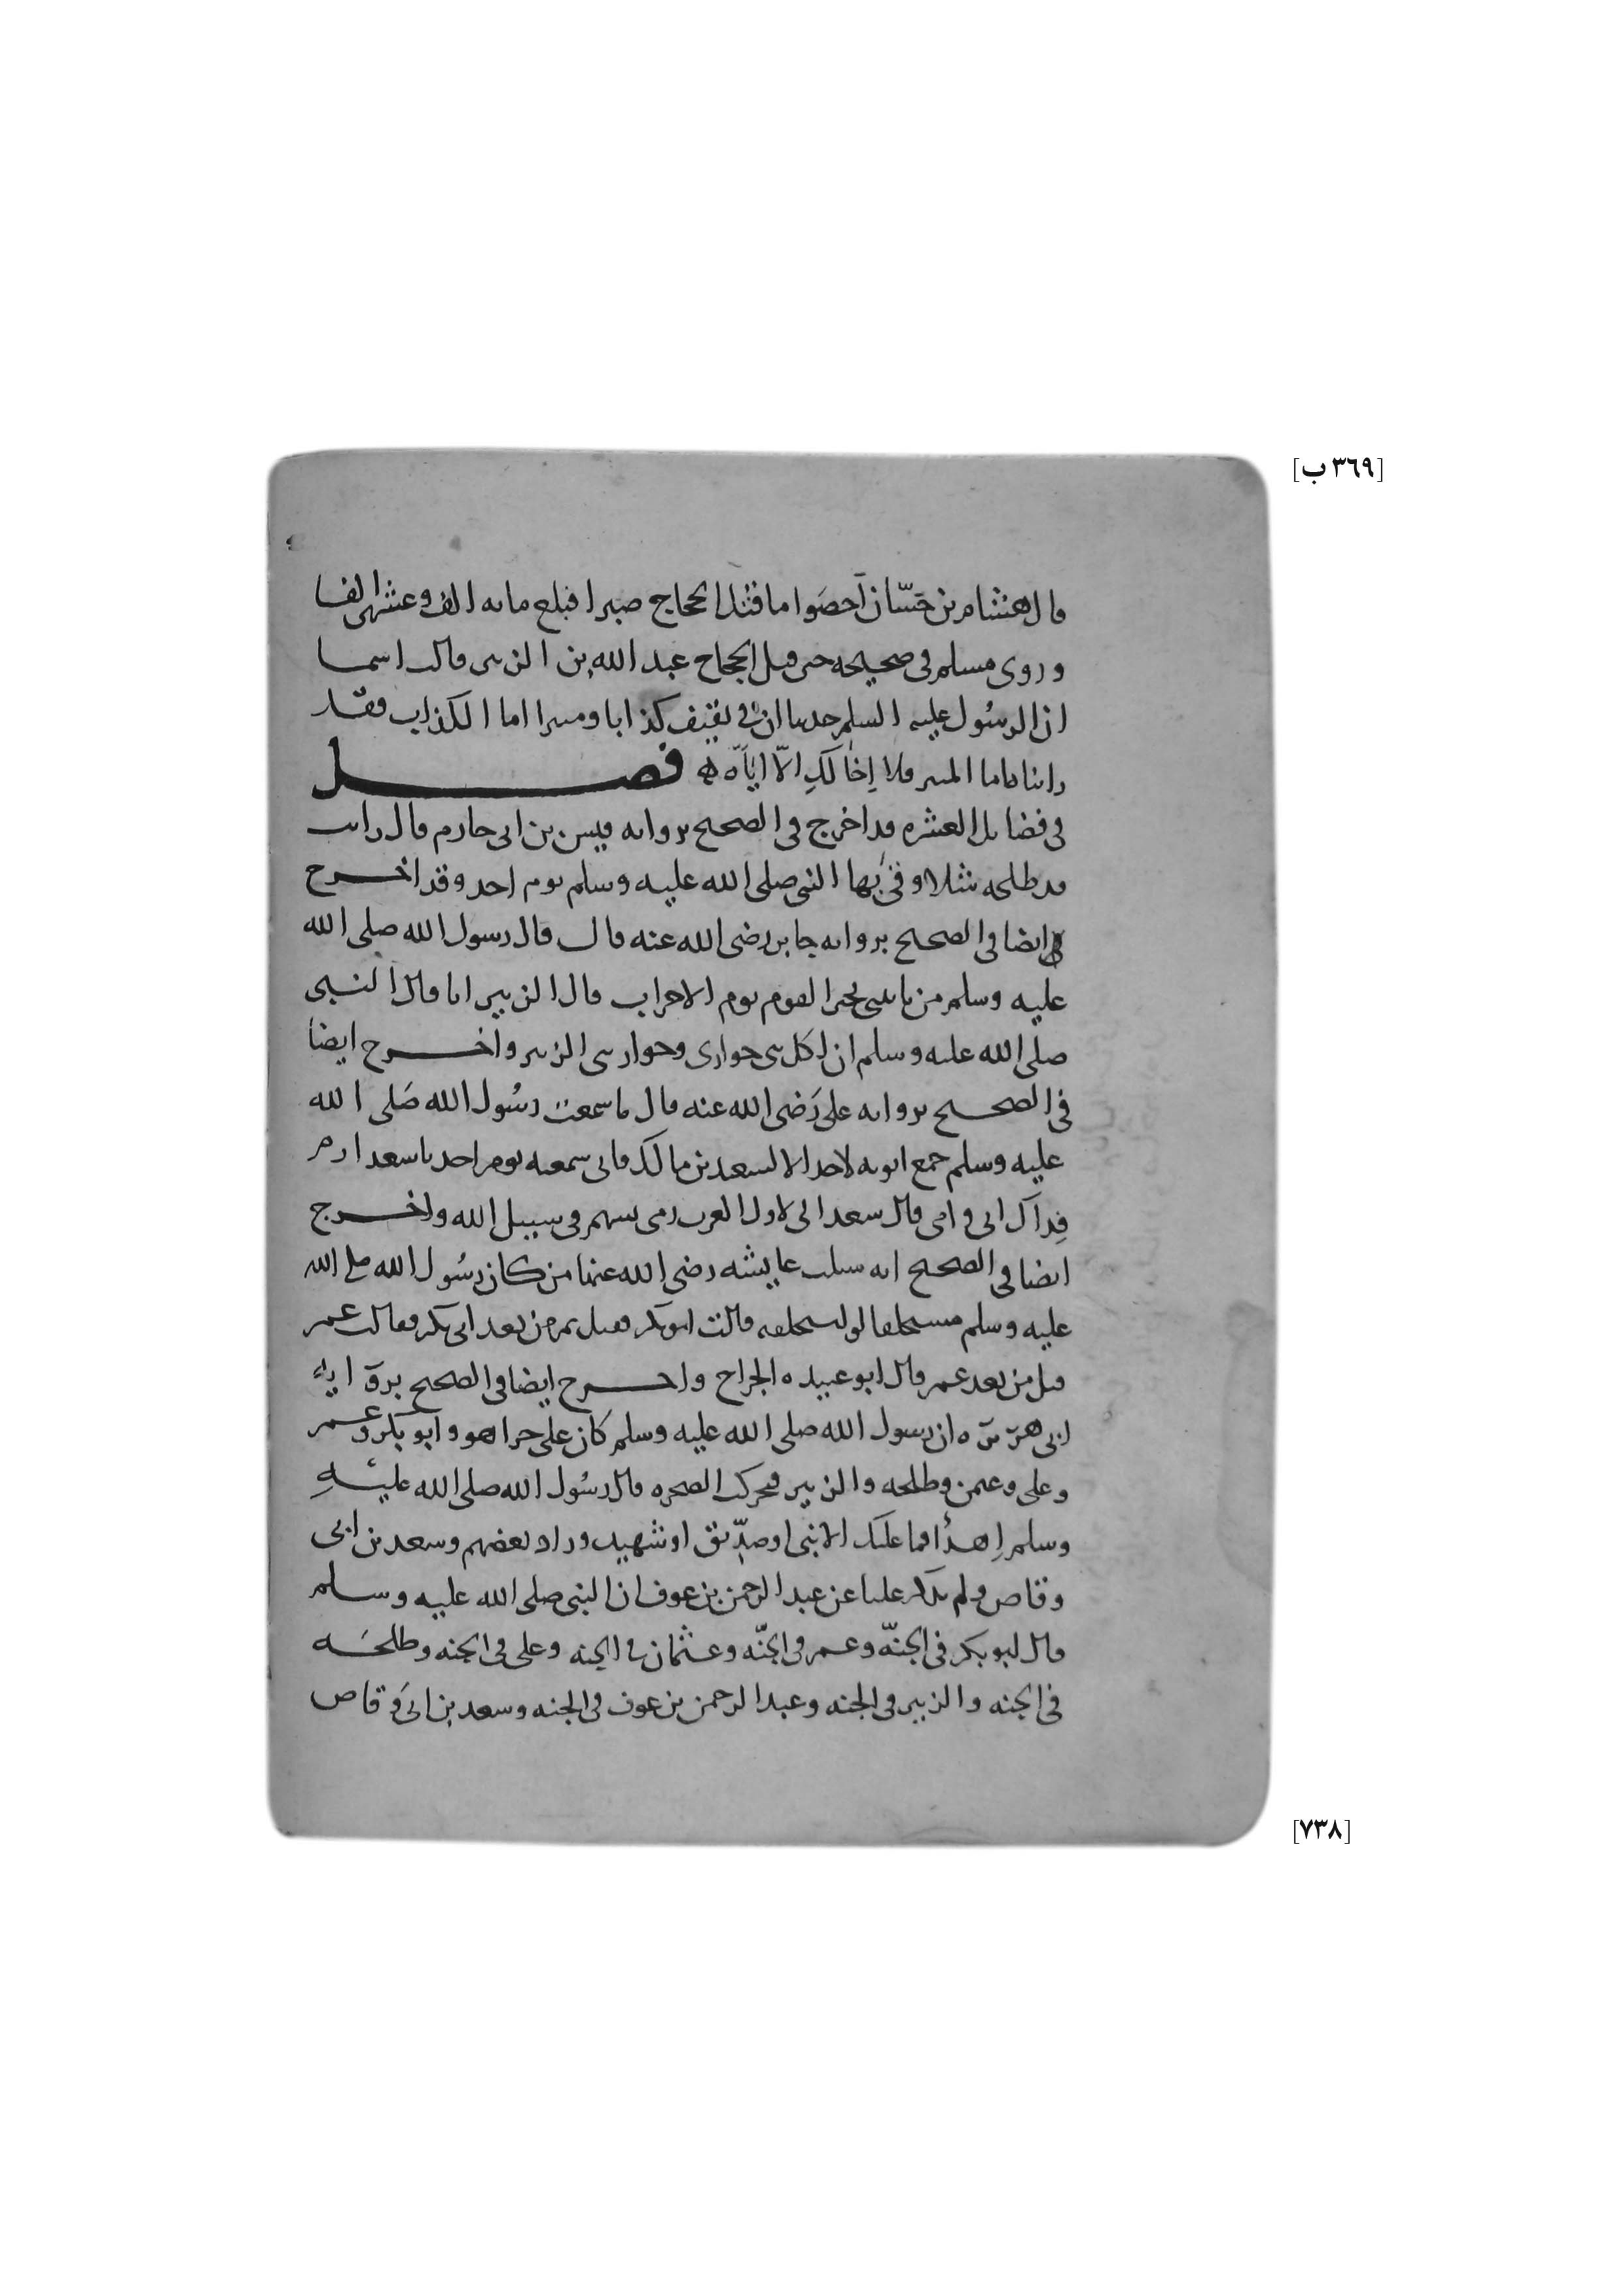 [٣٦٩ ب]
قال هشام بن حسّان أحصَوا ما قتل الحجاج صبرا فبلغ مائه الف وعشرين الفا
وروى مسلم في صحيحه حين قتل الحجاج عبد الله بن الزبير قالت اسما
ان الرسُول عليه السلم حدثنا ان في ثقيف كذابا ومبيرا اما الكذاب فقد
رايناه اما المبير فلا إخالكَ الّا ايّاه ه فصل
في فضايل العشره قد اخرج في الصحيح بروايه قيس بن ابي حازم قال رايت
يد طلحه شلا وقى بها النبي صلى الله عليه وسلم يوم احد وقد اخرج
ايضا في الصحيح بروايه جابر رضي الله عنه قال قال رسول الله صلى الله
عليه وسلم من ياتيني بخبر القوم يوم الاحزاب قال الزبير انا قال النبي
صلى الله عليه وسلم ان لكل نبي حواري وحواريي الزبير واخرج ايضا
في الصحيح بروايه على رَضي الله عنه قال ما سمعت رسُول الله صَلى الله
عليه وسلم جمع ابويه لاحد الا لسعد بن مالك فاني سمعته يوم احد يا سعد ارم
فِداك ابي وامي قال سعد اني لاول العرب رمى بسهم في سبيل الله واخرج
ايضا في الصحيح انه سيلت عايشه رضي الله عنها من كان رسُول الله صلى الله
عليه وسلم مستخلفا لو استخلفه قالت ابو بكر فقيل ثم من بعد ابي بكر فقالت عمر
قيل من بعد عمر قال ابو عبيده الجراح واخرج ايضا في الصحيح بروايه
ابي هريره ان رسول الله صلى الله عليه وسلم كان على حرا هو وابو بكر وعمر
وعلى وعثمن وطلحه والزبير فتحركت الصخره قال رسُول الله صلى الله عليْهِ
وسلم إهدأ فما عليك الا نبي او صدّيق او شهيد وزاد بعضهم وسعد بن ابي
وقاص ولم يذكر عليا عن عبد الرحمن بن عوف ان النبي صلى الله عليه وسلم
قال ابو بكر في الجنّه وعمر في الجنّه وعثمان في الجنه وعلى في الجنه وطلحَه
في الجنه والزبير في الجنه وعبد الرحمن بن عوف في الجنه وسعد بن ابي وقاص
[٧٣٨]